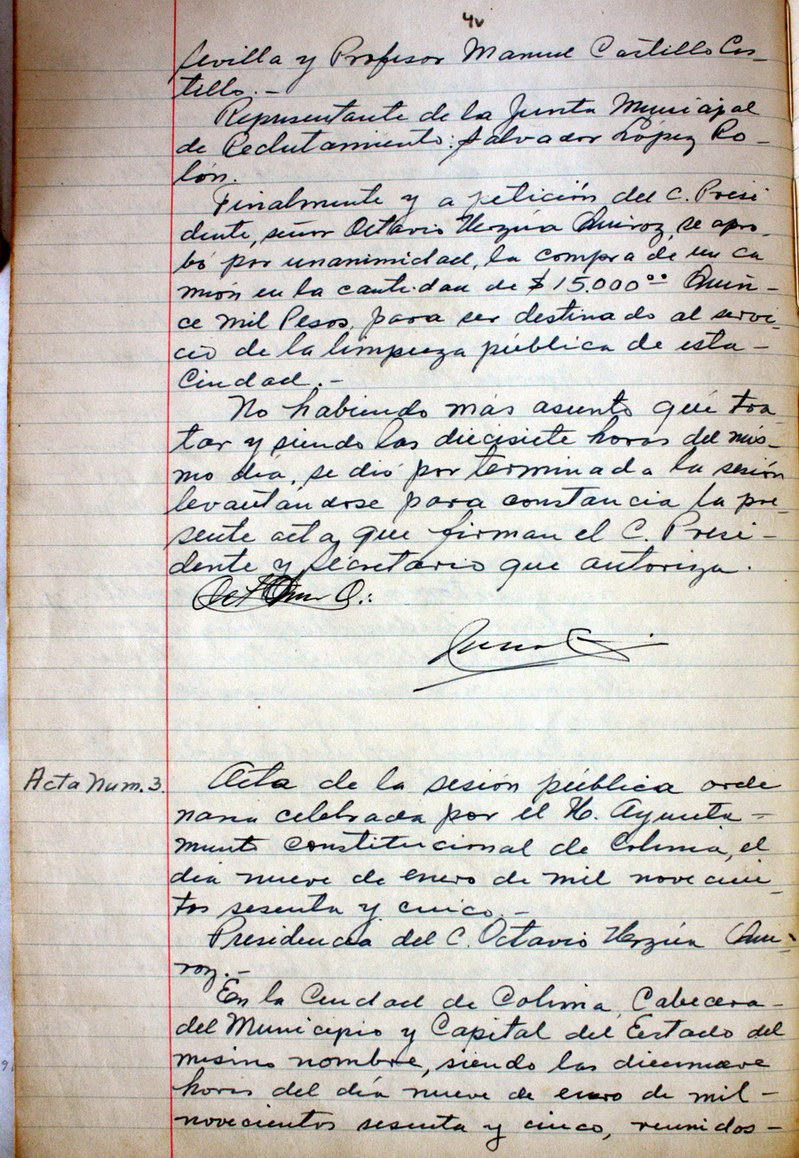 4v
Sevilla y Profesor Manuel Castillo Cas-
tillo.-
Representante de la Junta Municipal
de Reclutamiento: Salvador López Ro-
lón.
Finalmente y a petición del C. Presi
dente, señor Octavio Urzúa Quiroz, se apro-
bó por unanimidad, la compra de un ca
mión en la cantidad de $15.000°° Quin-
ce mil Pesos, para ser destinado al servi-
cio de la limpieza pública de esta-
Ciudad.-
No habiendo más asunto qué tra
tar y siendo las diecisiete horas del mis-
mo día, se dió por terminada la sesión
levantándose para constancia la pre-
sente acta que firman el C. Presi-
dente y Secretario que autoriza.
Acta Num. 3.
Acta de la sesión pública ordi
naria celebrada por el H. Ayunta-
miento constitucional de Colima, el
día nueve de enero de mil novecien-
tos sesenta y cinco.-
Presidencia del C. Octavio Urzúa Qui-
roz.-
En la Ciudad de Colima, Cabecera-
del Municipio y Capital del Estado del
mismo nombre, siendo las diecinueve
horas del día nueve de enero de mil-
novecientos sesenta y cinco, reunidos-